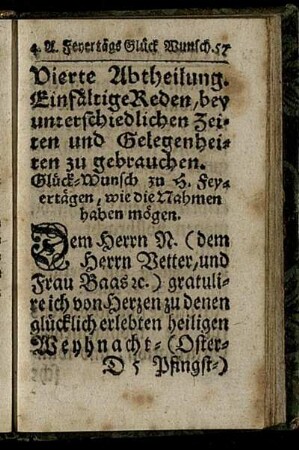 4. A. Feyertägs Glück Wunsch. 57
Vierte Abtheilung.
Einfältige Reden, bey
unterschiedlichen Zei-
ten und Gelegenhei-
ten zu gebrauchen.
Glück-Wunsch zu H. Fey-
ertägen, wie die Nahmen
haben mögen.
Dem Herrn N. (dem
Herrn Vetter, und
Frau Baas ꝛc.) gratuli-
re ich von Herzen zu denen
glücklich erlebten heiligen
Weyhnacht- (Oster-
D 5 Pfingst-)